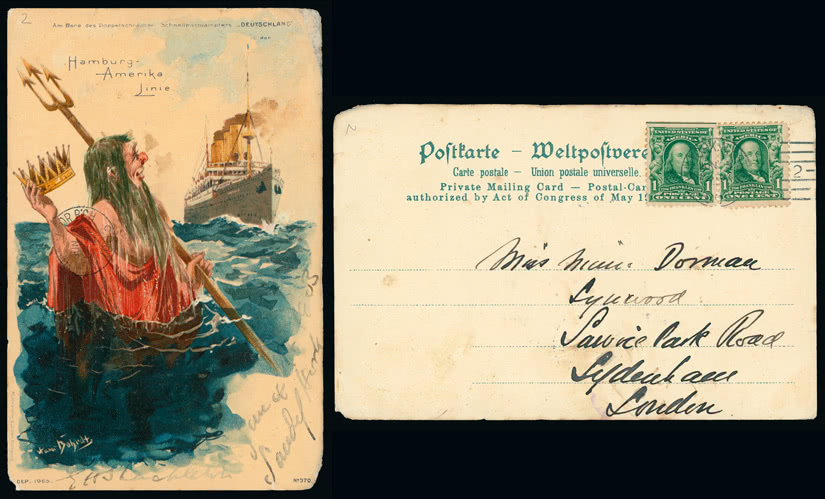 2
Am Bord des Doppelschrauben Schnellpostdampfers "DEUTSCHLAND"
der
Hamburg-
Amerika
Linie
Hans Bohrdt
DEP. 1903.
EH Shackleton
Nº 370
2
Postkarte – Weltpostvere
Carte postale – Union postale universelle.
Private Mailing Card – Postal-Car
authorized by Act of Congress of May 1
UNITED STATES OF
AMERICA
1 FRANKLIN 1
POSTAGE
ONE CENT
UNITED STATES OF
AMERICA
1 FRANKLIN 1
POSTAGE
ONE CENT
2
Miss Dorman
Road
Sydenham
London